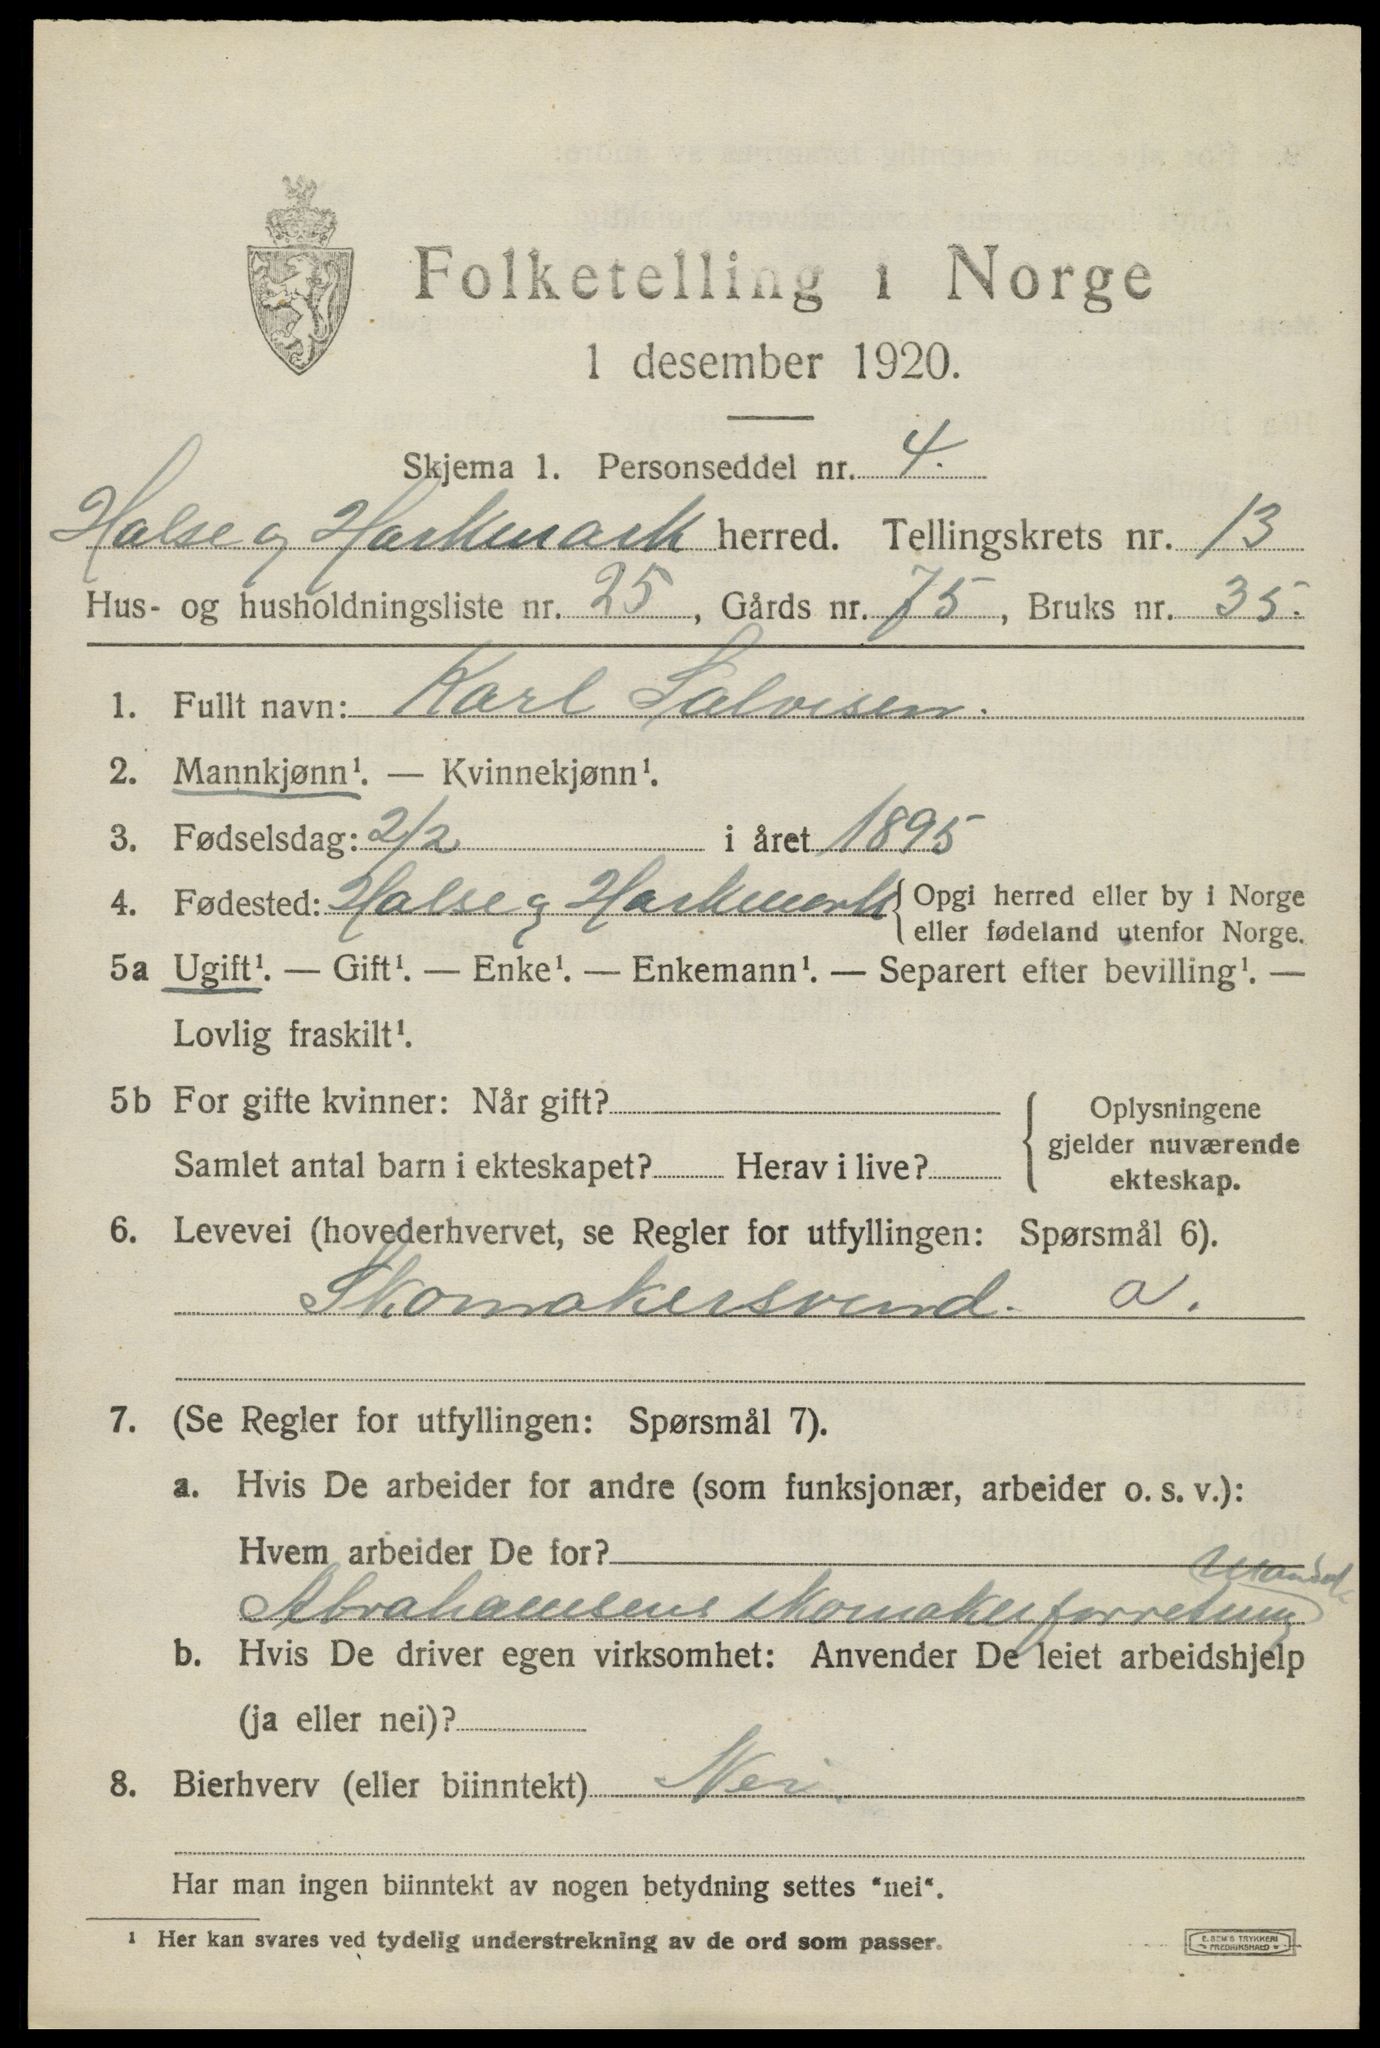 Folketelling i Norge
1 desember 1920.
Skjema 1. Personseddel nr. 4.
Halse og Harkmark herred. Tellingskrets nr. 13
Hus- og husholdningsliste nr. 25, Gårds nr. 75, Bruks nr. 35.
1. Fullt navn: Karl Salvesen.
2. Mannkjønn¹. — Kvinnekjønn¹.
3. Fødselsdag: 2/2 i året 1895
4. Fødested: Halse og Harkmark { Opgi herred eller by i Norge
eller fødeland utenfor Norge.
5a Ugift¹. — Gift¹. — Enke¹. — Enkemann¹. — Separert efter bevilling¹. —
Lovlig fraskilt¹.
5b For gifte kvinner: Når gift?
Samlet antal barn i ekteskapet? Herav i live?
{ Oplysningene
gjelder nuværende
ekteskap.
6. Levevei (hovederhvervet, se Regler for utfyllingen: Spørsmål 6).
Skomakersvend. a.
7. (Se Regler for utfyllingen: Spørsmål 7).
a. Hvis De arbeider for andre (som funksjonær, arbeider o. s. v.):
Hvem arbeider De for?
Abrahamsens skomakerforretning
b. Hvis De driver egen virksomhet: Anvender De leiet arbeidshjelp
(ja eller nei)?
8. Bierhverv (eller biinntekt) Nei.
Har man ingen biinntekt av nogen betydning settes "nei".
¹ Her kan svares ved tydelig understrekning av de ord som passer.
E. SEM'S TRYKKERI
FREDRIKSHALD